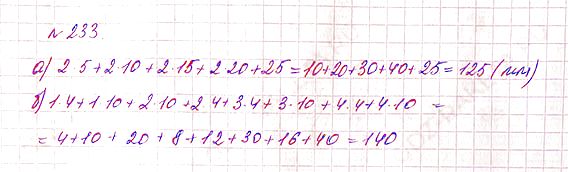 № 233.
а) 2·5+2·10+2·15+2·20+25=10+20+30+40+25=125 (мм)
б) 1·4+1·10+2·10+2·4+3·4+3·10+4·4+4·10 =
= 4+10+20+8+12+30+16+40=140